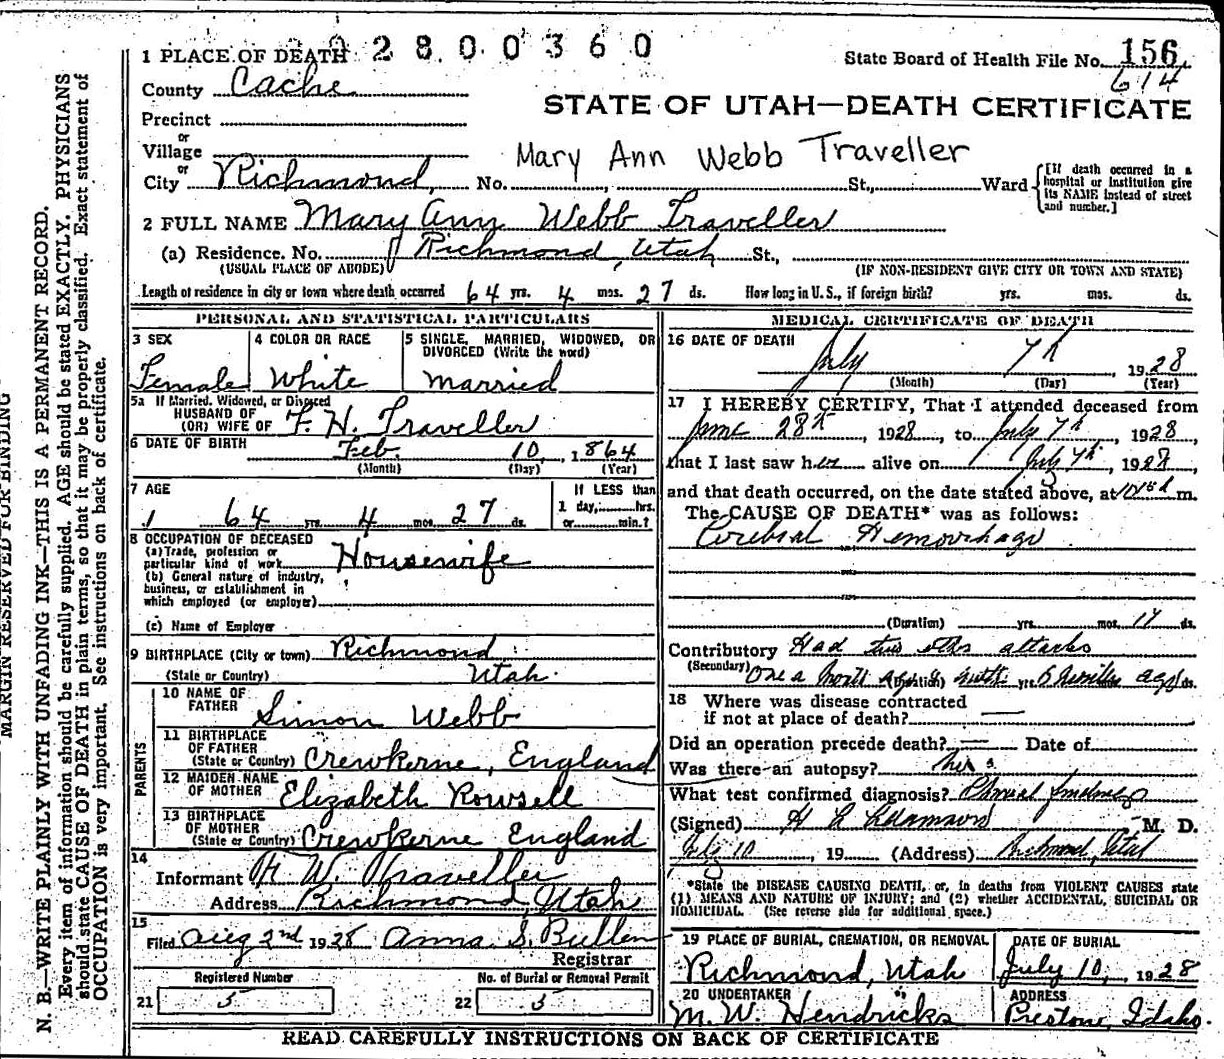 1 PLACE OF DEATH 2 8 0 0 3 6 0
State Board of Health File No. 156
614
County Cache
STATE OF UTAH—DEATH CERTIFICATE
Precinct
or
Village
Mary Ann Webb Traveller
or
City Richmond, No. , St., Ward
[If death occurred in a hospital or institution give its NAME instead of street and number.]
2 FULL NAME Mary Ann Webb Traveller
(a) Residence. No. Richmond, Utah St.,
(USUAL PLACE OF ABODE) (IF NON-RESIDENT GIVE CITY OR TOWN AND STATE)
Length of residence in city or town where death occurred 64 yrs. 4 mos. 27 ds. How long in U. S., if foreign birth? yrs. mos. ds.
PERSONAL AND STATISTICAL PARTICULARS
3 SEX
Female
4 COLOR OR RACE
White
5 SINGLE, MARRIED, WIDOWED, OR
DIVORCED (Write the word)
Married
5a If Married, Widowed, or Divorced
HUSBAND OF
(OR) WIFE OF F. H. Traveller
6 DATE OF BIRTH Feb. 10, 1864
(Month) (Day) (Year)
7 AGE
64 yrs. 4 mos. 27 ds.
If LESS than
1 day, hrs.
or min.?
8 OCCUPATION OF DECEASED
(a) Trade, profession or
particular kind of work Housewife
(b) General nature of industry,
business, or establishment in
which employed (or employer)
(c) Name of Employer
9 BIRTHPLACE (City or town) Richmond
(State or Country) Utah.
PARENTS
10 NAME OF
FATHER Simon Webb
11 BIRTHPLACE
OF FATHER
(State or Country) Crewkerne, England
12 MAIDEN NAME
OF MOTHER Elizabeth Rowsell
13 BIRTHPLACE
OF MOTHER
(State or Country) Crewkerne England
14
Informant W. Traveller
Address Richmond, Utah
15
Filed Aug 2nd 1928 Anna S. Bullen
Registrar
Registered Number
21 5
No. of Burial or Removal Permit
22 5
MEDICAL CERTIFICATE OF DEATH
16 DATE OF DEATH
July 7th 1928
(Month) (Day) (Year)
17 I HEREBY CERTIFY, That I attended deceased from
June 28th, 1928, to July 7th, 1928,
that I last saw her alive on July 7th, 1928,
and that death occurred, on the date stated above, at m.
The CAUSE OF DEATH* was as follows:
Cerebral Hemorrhage
(Duration) yrs. mos. ds.
Contributory Had two other attacks
(Secondary) One a month ago & (Duration) yrs. 6 months ago ds.
18 Where was disease contracted
if not at place of death?
Did an operation precede death? Date of
Was there an autopsy?
What test confirmed diagnosis? Clinical findings
(Signed) Adamson M. D.
July 10, 19 (Address) Richmond, Utah
*State the DISEASE CAUSING DEATH, or, in deaths from VIOLENT CAUSES state
(1) MEANS AND NATURE OF INJURY; and (2) whether ACCIDENTAL, SUICIDAL OR
HOMICIDAL. (See reverse side for additional space.)
19 PLACE OF BURIAL, CREMATION, OR REMOVAL
Richmond, Utah
DATE OF BURIAL
July 10, 1928
20 UNDERTAKER
M. W. Hendricks
ADDRESS
Preston, Idaho.
READ CAREFULLY INSTRUCTIONS ON BACK OF CERTIFICATE
MARGIN RESERVED FOR BINDING
N. B.—WRITE PLAINLY WITH UNFADING INK—THIS IS A PERMANENT RECORD.
Every item of information should be carefully supplied. AGE should be stated EXACTLY. PHYSICIANS
should state CAUSE OF DEATH in plain terms, so that it may be properly classified. Exact statement of
OCCUPATION is very important. See instructions on back of certificate.